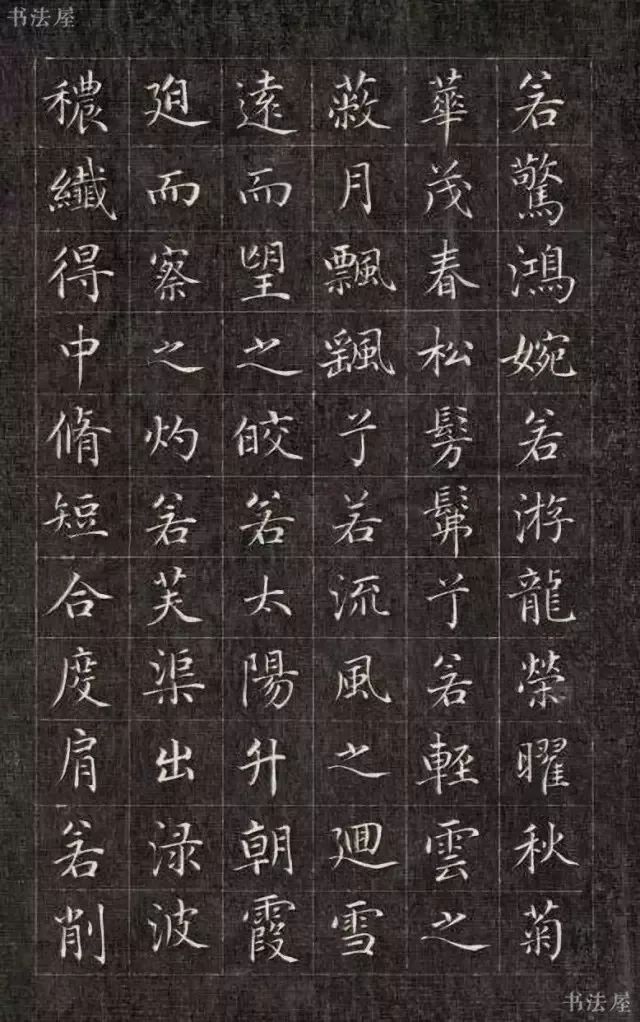 书法屋
若驚鴻婉若游龍榮曜秋菊
華茂春松髣髴兮若輕雲之
蔽月飄颻兮若流風之迴雪
遠而望之皎若太陽升朝霞
迫而察之灼若芙渠出渌波
穠纖得中脩短合度肩若削
书法屋